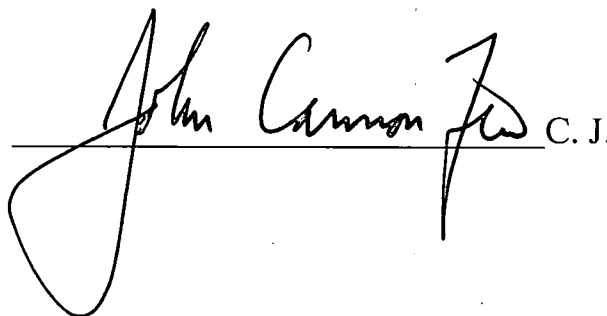 John Cannon Few C. J.